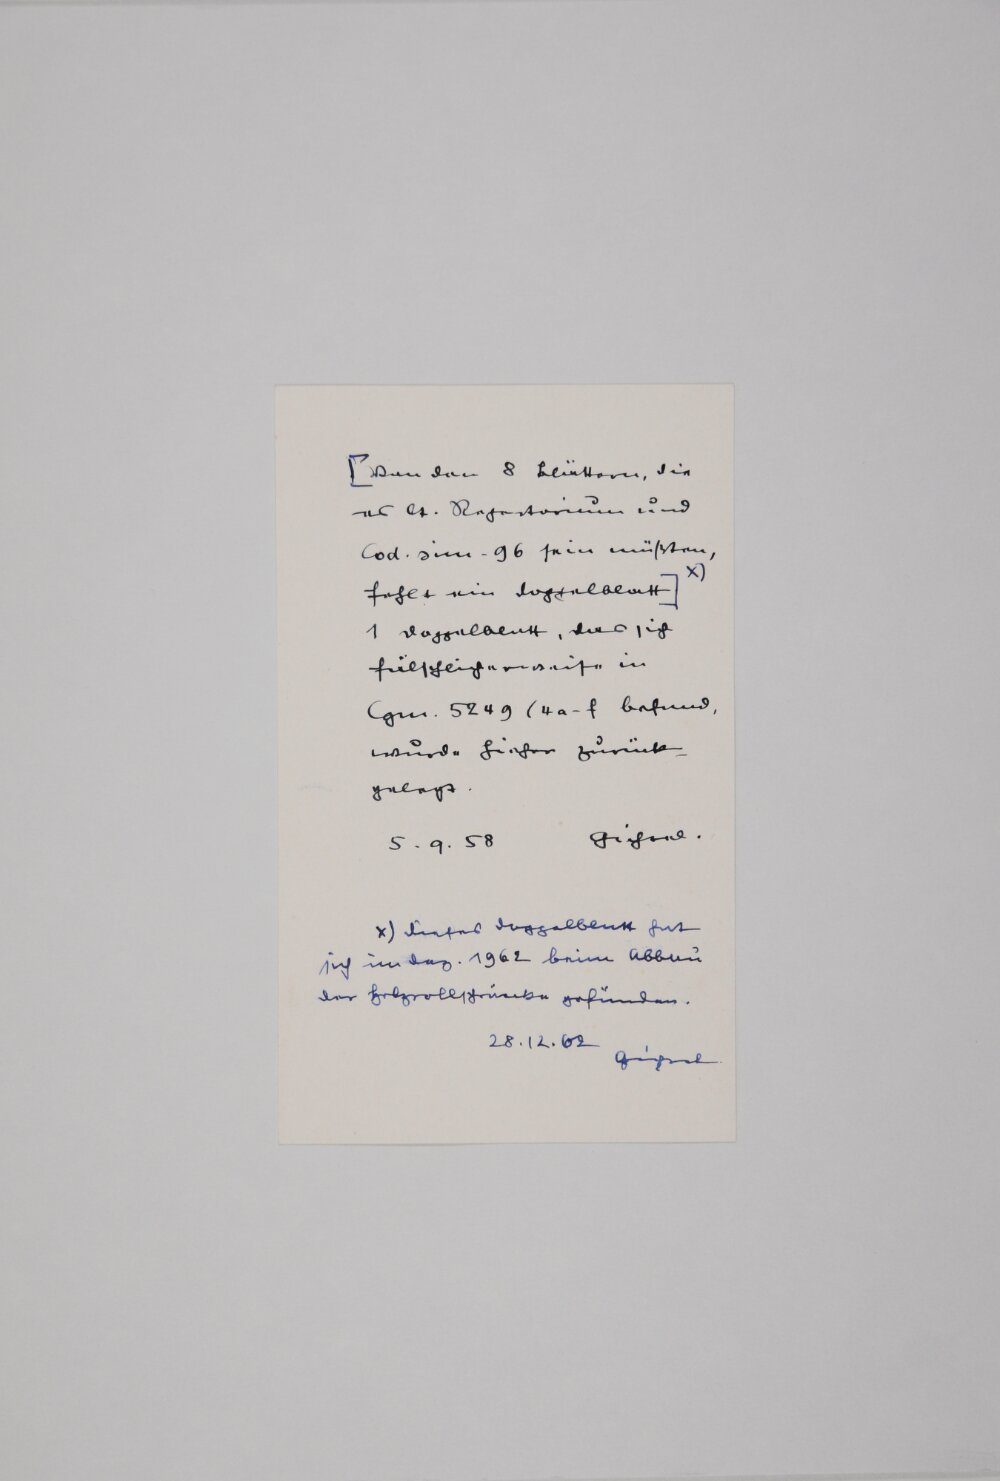 [Von den 8 Blättern, die
es lt. Repertorium und
Cod. sim. 96 sein müßten,
fehlt ein Doppelblatt] x)
1 Doppelblatt, das sich
fälschlicherweise in
Cgm. 5249 (4a-f befand,
wurde hieher zurück-
gelegt.
5.9.58 Gichtel.
x) Dieses Doppelblatt hat
sich im Dez. 1962 beim Abbau
der Holzrollschränke gefunden.
28.12.62
Gichtel